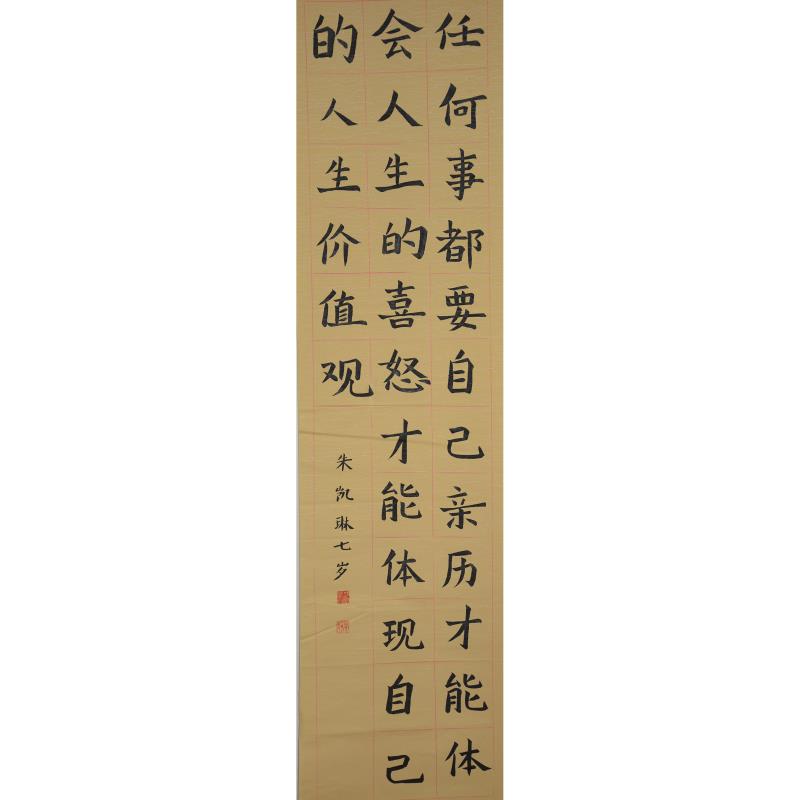 任何事都要自己亲历才能体
会人生的喜怒才能体现自己
的人生价值观
朱凯琳七岁